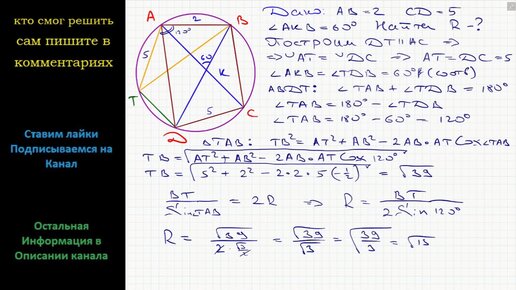 кто смог решить
сам пишите в
комментариях
Ставим лайки
Подписываемся на
Канал
Остальная
Информация в
Описании канала
A
2
B
120°
5
60
K
T
5
C
D
Дано: AB=2 CD=5
∠AKB=60° Найти R-?
Построим DT∥AC ⇒
⇒ ∪AT=∪DC ⇒ AT=DC=5
∠AKB=∠TDB=60° (соотв)
ABDT: ∠TAB+∠TDB=180°
∠TAB=180°-∠TDB
∠TAB=180°-60°=120°
△TAB: TB²=AT²+AB²-2AB·AT Cos∠TAB
TB=√AT²+AB²-2AB·AT Cos 120°
TB=√5²+2²-2·2·5(-½) = √39
BT/Sin TAB = 2R ⇒ R = BT/2Sin 120°
R = √39/2·√3/2 = √39/√3 = √39/3 = √13